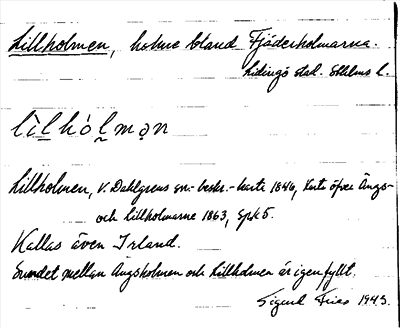 Lillholmen, holme bland Fjäderholmarna.
Lidingö stad. Sthlms l.
Lillholmen, V. Dahlgrens sn.-beskr.-karta 1846, Karta öfver Ängs-
och Lillholmarne 1863, Spk 5.
Kallas även Irland.
Sundet mellan Ängsholmen och Lillholmen är igenfyllt.
Sigurd Fries 1943.